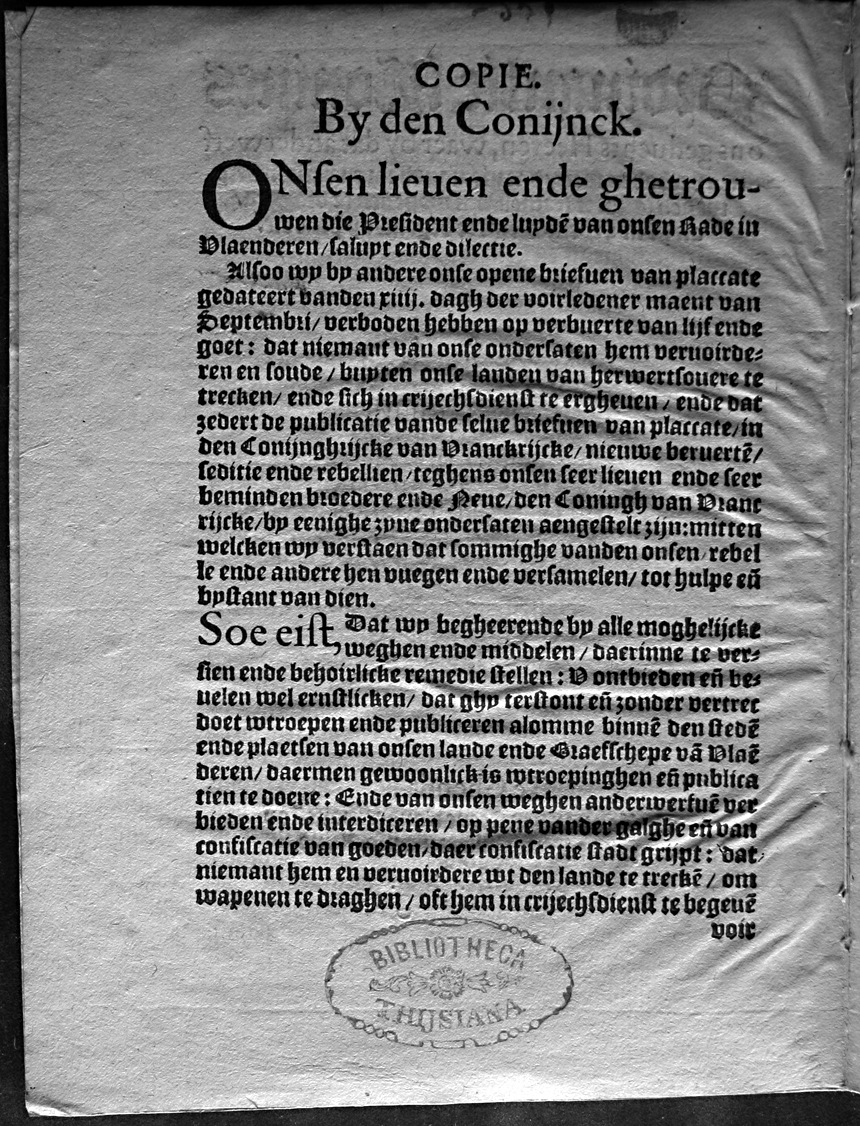 COPIE.
By den Conijnck.
ONſen lieuen ende ghetrou-
wen die Preſident ende luydē van onſen Rade in
Vlaenderen/ſaluyt ende dilectie.
Alſoo wy by andere onſe opene briefuen van placcate
gedateert vanden xiiij. dagh der voirledener maent van
Septembri/ verboden hebben op verbuerte van lijf ende
goet: dat niemant van onſe onderſaten hem veruoirde⸗
ren en ſoude / buyten onſe landen van herwertſouere te
trecken/ ende ſich in crijechſdienſt te ergheuen / ende dat
zedert de publicatie vande ſelue briefuen van placcate/in
den Conijnghrijcke van Vranckrijcke/ nieuwe beruertē/
ſeditie ende rebellien/teghens onſen ſeer lieuen ende ſeer
beminden broedere ende Neue/den Coningh van Vranc
rijcke/by eenighe zyne onderſaten aengeſtelt zijn:mitten
welcken wy verſtaen dat ſommighe vanden onſen rebel
le ende andere hen vuegen ende verſamelen/ tot hulpe eñ
byſtant van dien.
Soe eiſt, Dat wy begheerende by alle moghelijcke
weghen ende middelen / daerinne te ver⸗
ſien ende behoirlicke remedie ſtellen : V ontbieden eñ be⸗
uelen wel ernſtlicken/ dat ghy terſtont eñ zonder vertrec
doet wtroepen ende publiceren alomme binnē den ſtedē
ende plaetſen van onſen lande ende Graefſchepe vā Vlaē
deren/ daermen gewoonlick is wtroepinghen eñ publica
tien te doene : Ende van onſen weghen anderwerfuē ver
bieden ende interdiceren / op pene vander galghe eñ van
confiſcatie van goeden/daer confiſcatie ſtadt grijpt : dat
niemant hem en veruoirdere wt den lande te treckē / om
wapenen te draghen / oft hem in crijechſdienſt te begeuē
voir
BIBLIOTHECA
THYSIANA